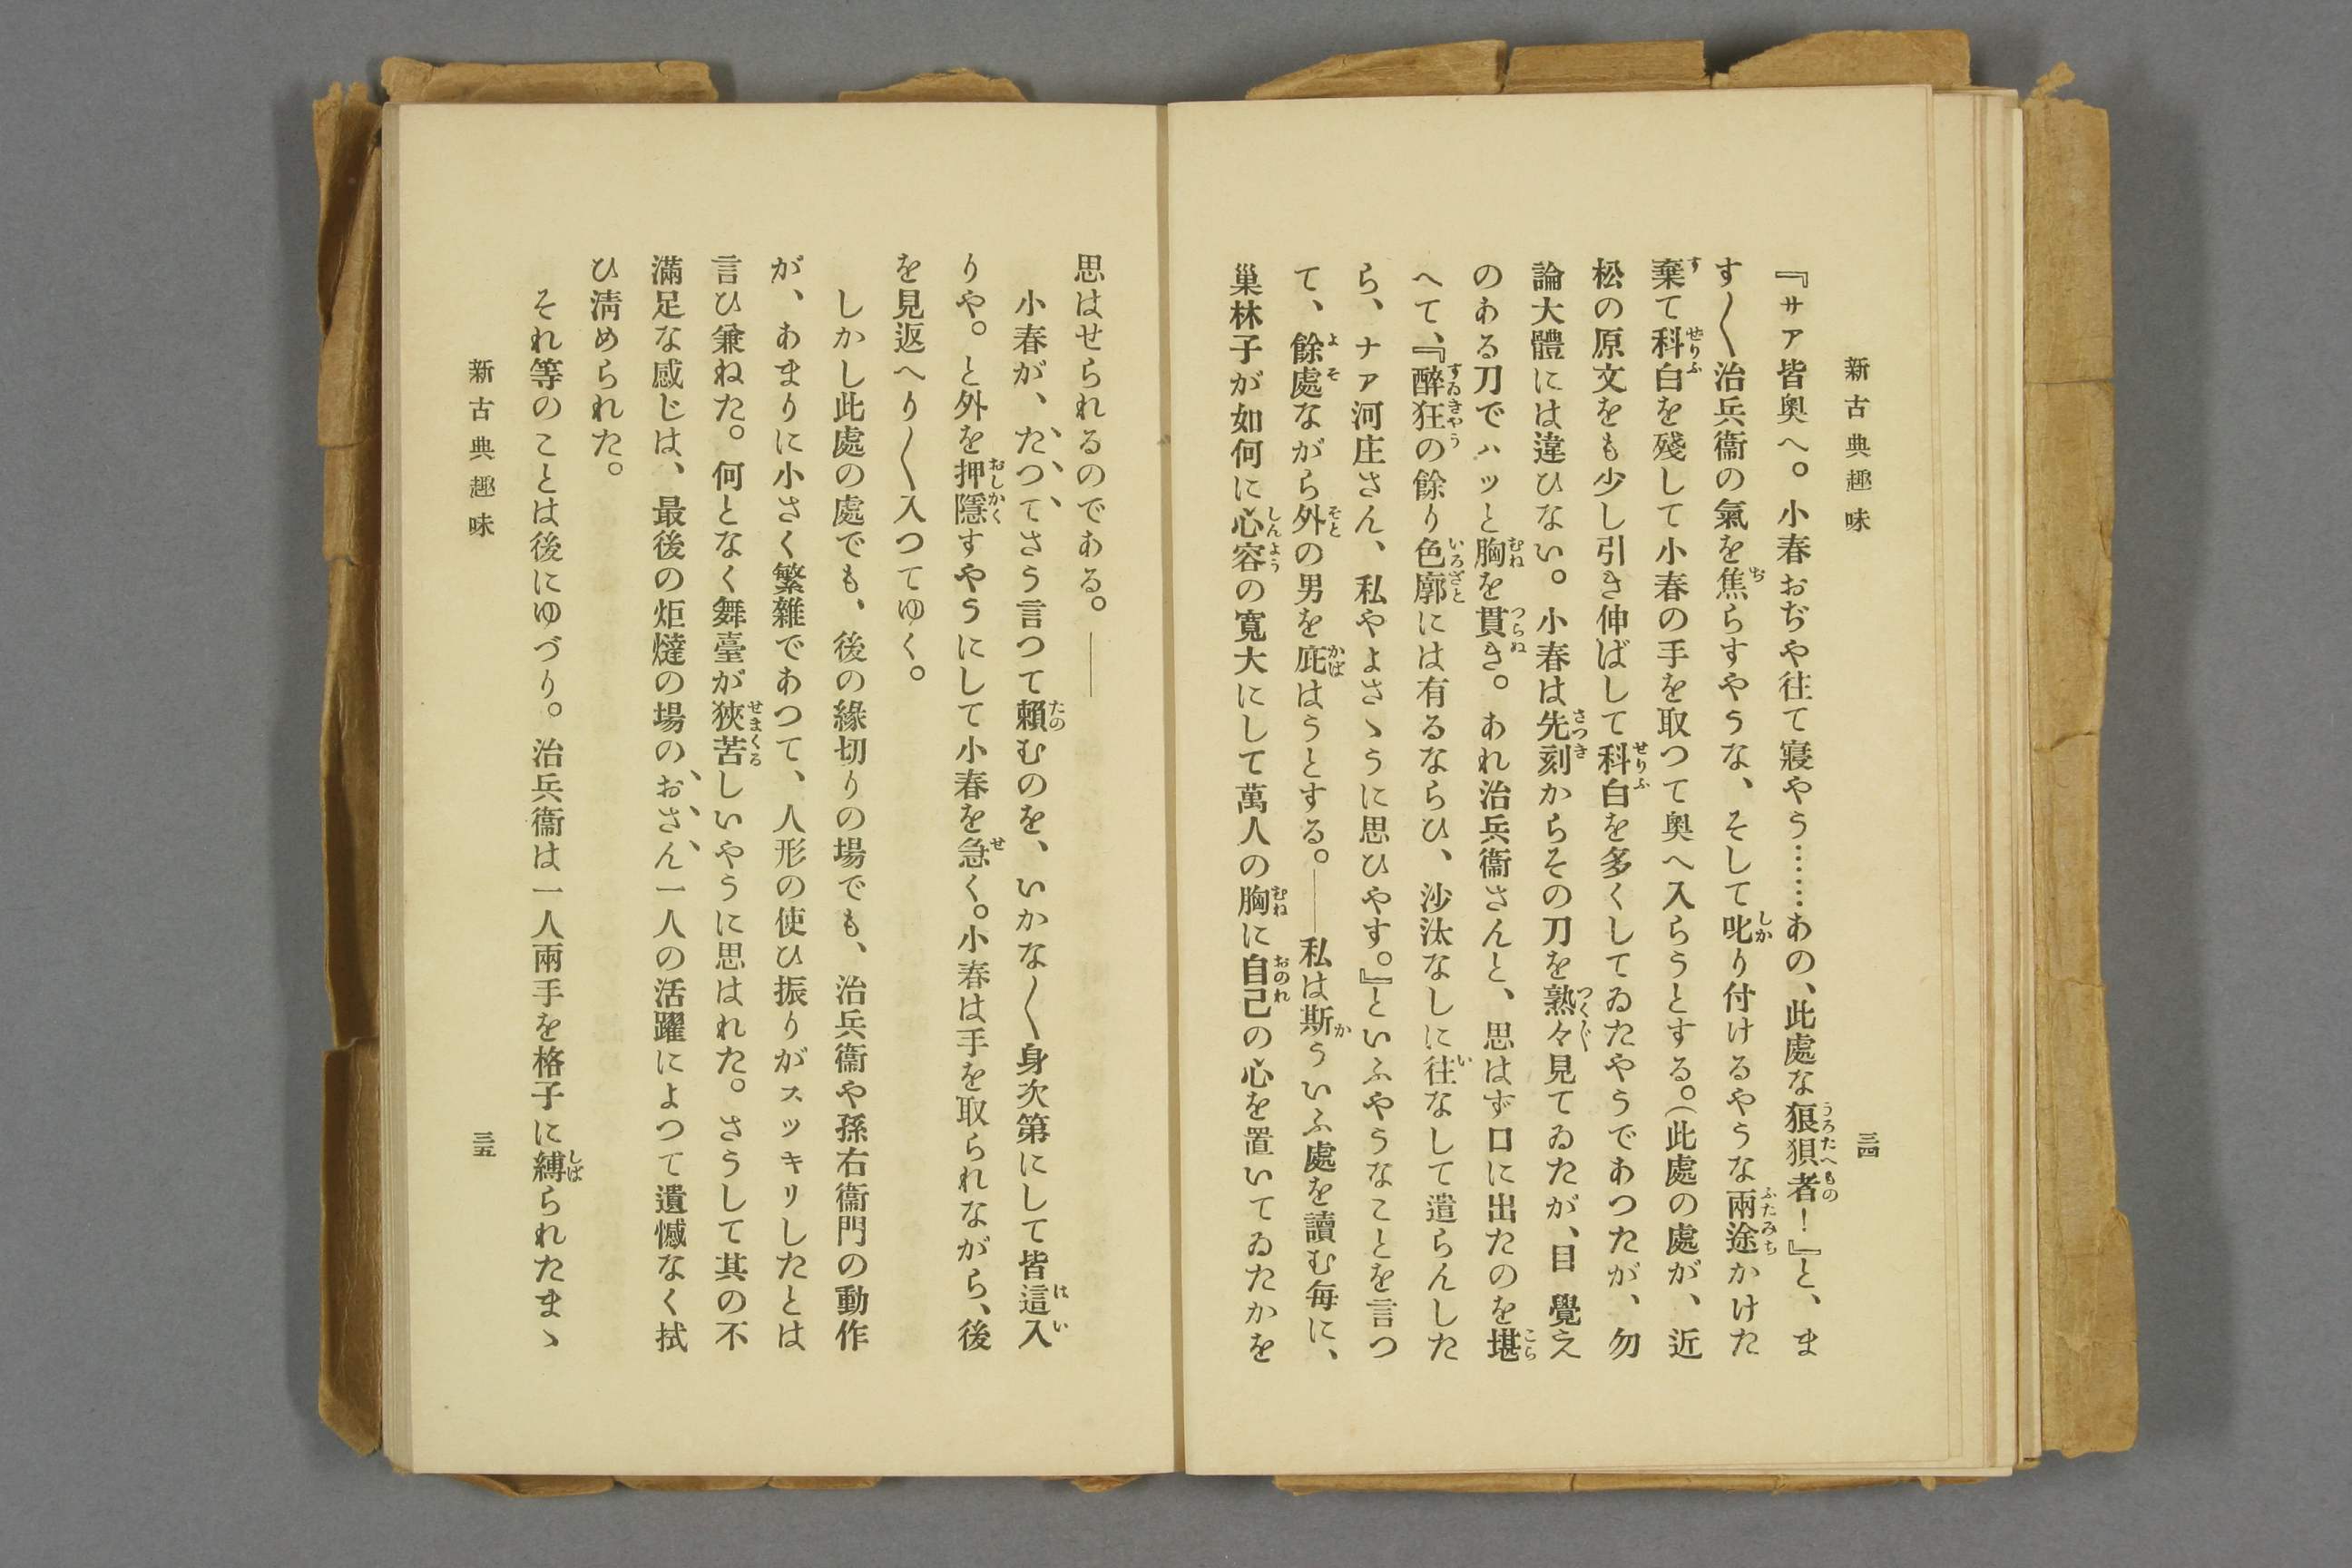 新古典趣味
三四
『サア皆奥へ。小春おぢや往て寢やう……あの、此處な狼狽者！』と、ま
す〱治兵衞の氣を焦らすやうな、そして叱り付けるやうな兩途かけた
棄て科白を殘して小春の手を取つて奥へ入らうとする。（此處の處が、近
松の原文をも少し引き伸ばして科白を多くしてゐたやうであつたが、勿
論大體には違ひない。小春は先刻からその刀を熟々見てゐたが、目覺え
のある刀でハッと胸を貫き。あれ治兵衞さんと、思はず口に出たのを堪
へて、『醉狂の餘り色廓には有るならひ、沙汰なしに往なして遣らんした
ら、ナア河庄さん、私やよさゝうに思ひやす。』といふやうなことを言つ
て、餘處ながら外の男を庇はうとする。――私は斯ういふ處を讀む毎に、
巢林子が如何に心容の寬大にして萬人の胸に自己の心を置いてゐたかを
思はせられるのである。――
小春が、たつてさう言つて賴むのを、いかな〱身次第にして皆這入
りや。と外を押隱すやうにして小春を急く。小春は手を取られながら、後
を見返へり〱入つてゆく。
しかし此處の處でも、後の緣切りの場でも、治兵衞や孫右衞門の動作
が、あまりに小さく繁雜であつて、人形の使ひ振りがスッキリしたとは
言ひ兼ねた。何となく舞臺が狹苦しいやうに思はれた。さうして其の不
滿足な感じは、最後の炬燵の場の、おさん一人の活躍によつて遺憾なく拭
ひ淸められた。
それ等のことは後にゆづり。治兵衞は一人兩手を格子に縛られたまゝ
新古典趣味
三五